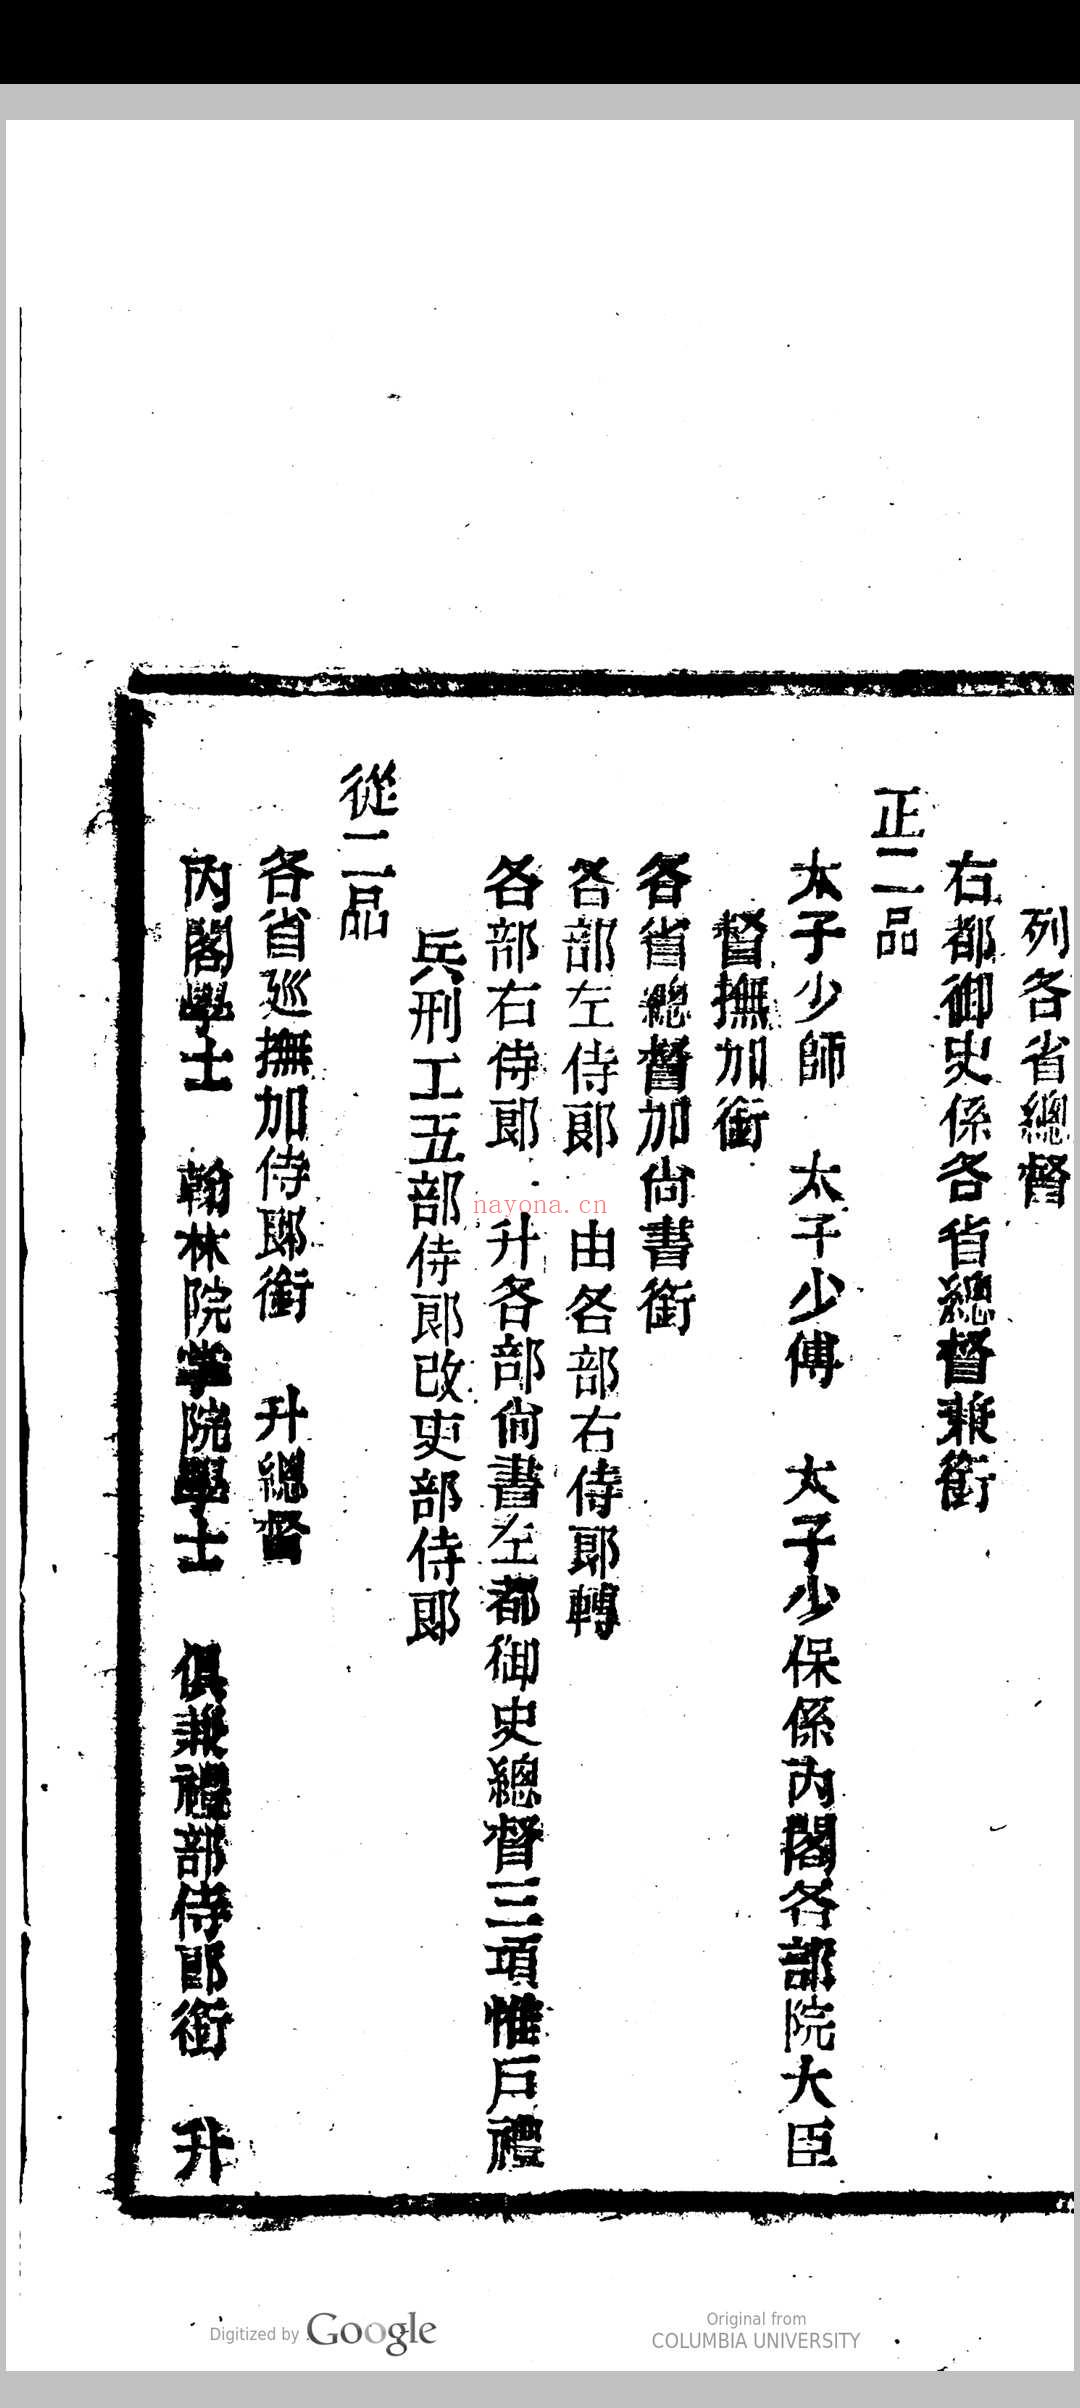 列各省總督
右都御史係各省總督兼銜
正二品
太子少師 太子少傅 太子少保係內閣各部院大臣
督撫加銜
各省總督加尙書銜
各部左侍郎 由各部右侍郎轉
各部右侍郎 升各部尙書左都御史總督三項惟戶禮
兵刑工五部侍郎改吏部侍郎
從二品
各省巡撫加侍郎銜 升總督
內閣學士 翰林院掌院學士 俱兼禮部侍郎銜 升
nayona.cn
Digitized by Google
Original from
COLUMBIA UNIVERSITY